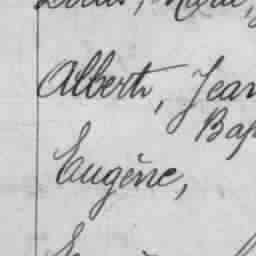 Louis, Marie,
Albert, Jean
Bap
Eugène,